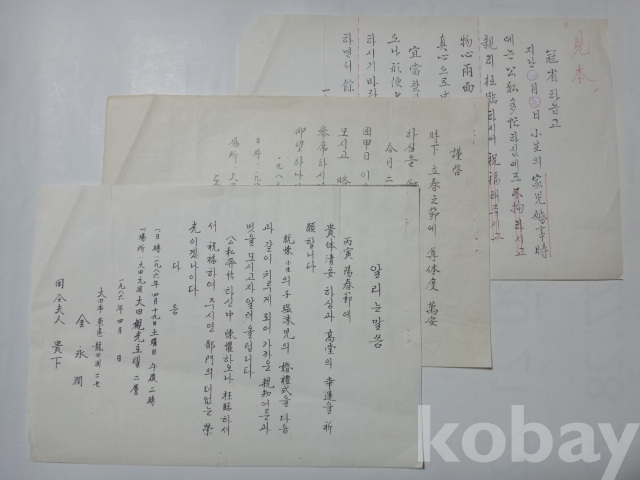 見本
冠省하옵고
지난 月 日 小生의 家児婚事時
에는 公私多忙하심에도 不拘하시고
親히 枉臨하시여 祝福해주시고
物心兩面
真心으로
宜當
오나 
하시기바라
하면서 餘
謹啓
時下 立春之節에 尊体度 萬安
하심을
今日二
回甲日
모시고 略
參席하시
仰望하나
日時 一九八
場所 大
알리는 말씀
丙寅 陽春節에
貴体淸安 하심과 高堂의 幸運을 祈
願합니다
就悚 小生의 子 洙君의 婚禮式을 다음
과 같이 치르게 되어 가까운 親知어른과
벗을 모시고자 알려올립니다
公私 하신中 悚懼하오나 枉臨하셔
서 祝福하여 주시면 門의 더없는 榮
光이겠나이다
다음
一 日時 一九八六年 四月十九日 土曜日 午後 二時
一 場所 大田 元洞 大田 觀光호텔 二層
一九八六年 四月 日
大田市 東區 龍田洞 二七
金永潤
同令夫人 貴下
kobay